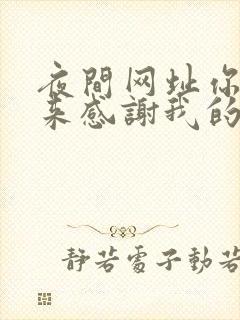 夜間网址你
来感謝我的
静若處子動若